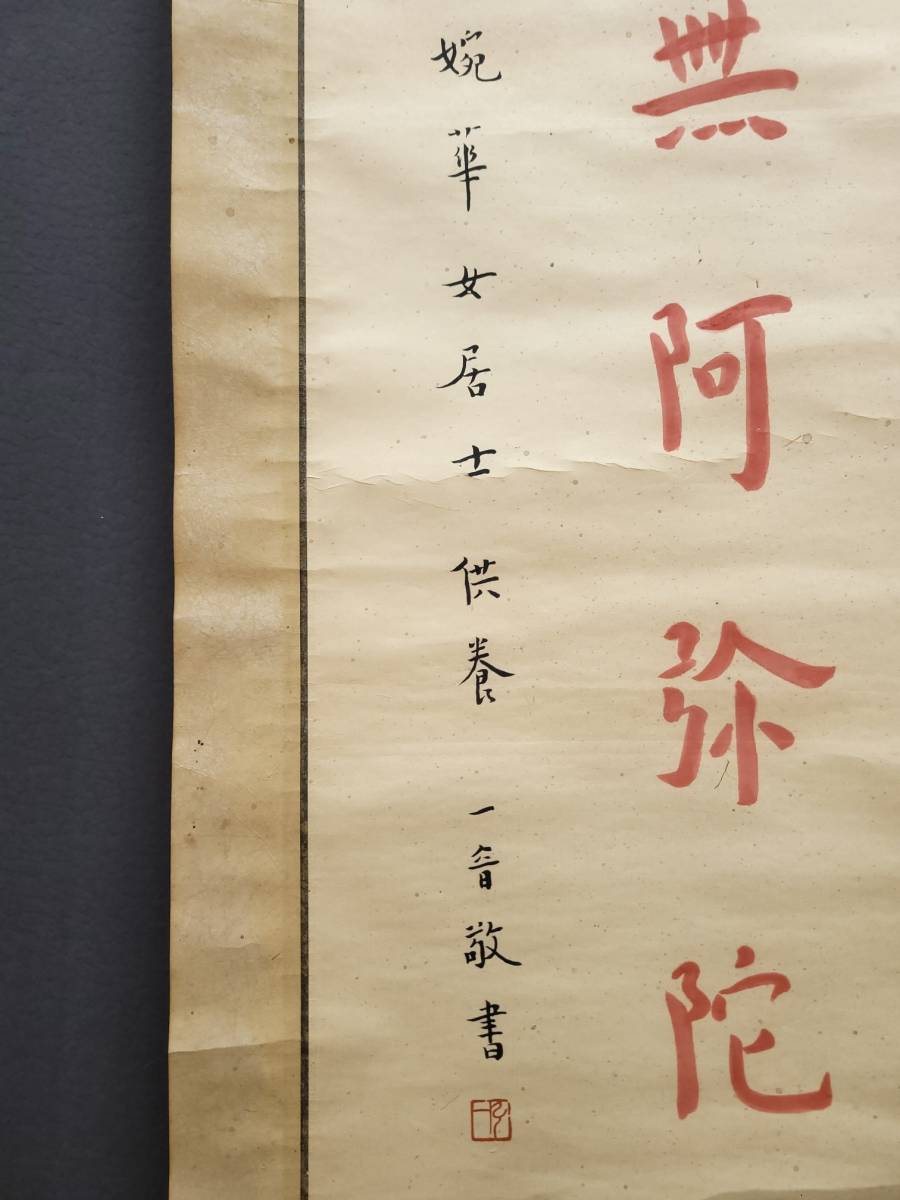 無阿弥陀
婉華女居士供養 一音敬書